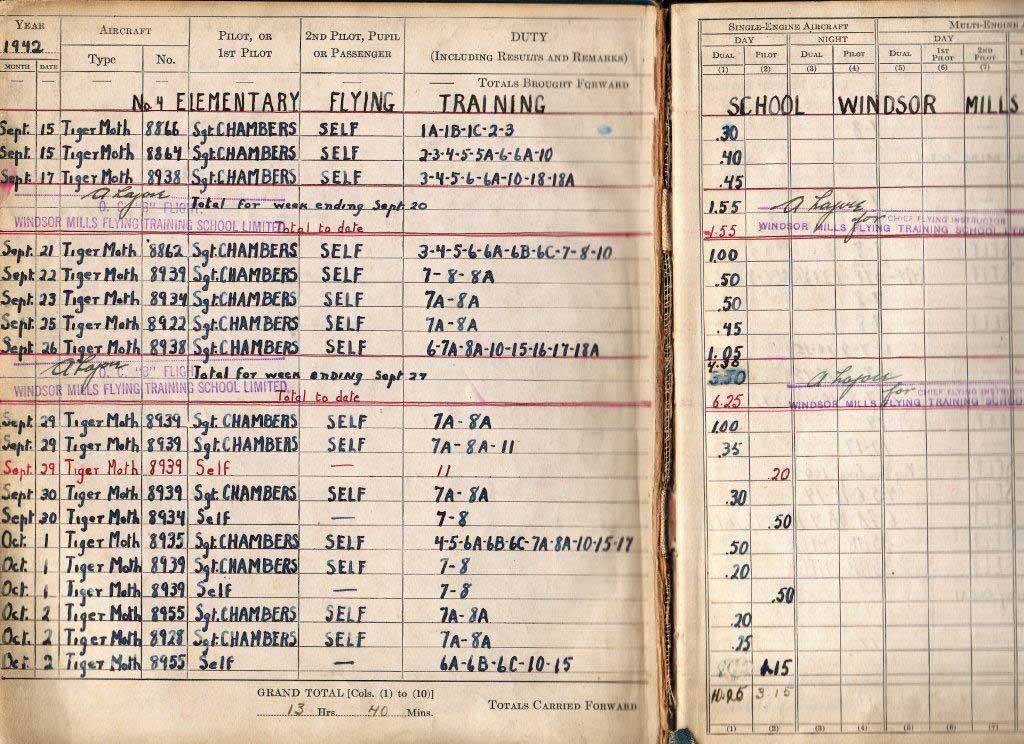 YEAR AIRCRAFT PILOT, OR 1ST PILOT 2ND PILOT, PUPIL OR PASSENGER DUTY (INCLUDING RESULTS AND REMARKS) SINGLE-ENGINE AIRCRAFT MULTI-ENGINE
1942 DAY NIGHT DAY
MONTH DATE Type No. DUAL PILOT DUAL PILOT DUAL 1ST PILOT 2ND PILOT
(1) (2) (3) (4) (5) (6) (7)
— — — — — — TOTALS BROUGHT FORWARD
No 4 ELEMENTARY FLYING TRAINING SCHOOL WINDSOR MILLS
Sept. 15 Tiger Moth 8866 Sgt. CHAMBERS SELF 1A-1B-1C-2-3 .30
Sept. 15 Tiger Moth 8864 Sgt. CHAMBERS SELF 2-3-4-5-5A-6-6A-10 .40
Sept. 17 Tiger Moth 8938 Sgt. CHAMBERS SELF 3-4-5-6-6A-10-18-18A .45
Total for week ending Sept 20 1.55 for CHIEF FLYING INSTRUCTOR
WINDSOR MILLS FLYING TRAINING SCHOOL LIMITED Total to date 1.55 WINDSOR MILLS FLYING TRAINING SCHOOL
Sept. 21 Tiger Moth 8862 Sgt. CHAMBERS SELF 3-4-5-6-6A-6B-6C-7-8-10 1.00
Sept. 22 Tiger Moth 8939 Sgt. CHAMBERS SELF 7-8-8A .50
Sept. 23 Tiger Moth 8934 Sgt. CHAMBERS SELF 7A-8A .50
Sept. 25 Tiger Moth 8922 Sgt. CHAMBERS SELF 7A-8A .45
Sept. 26 Tiger Moth 8938 Sgt. CHAMBERS SELF 6-7A-8A-10-15-16-17-18A 1.05
4.30
O. C. "B" FLIGHT Total for week ending Sept 27 for CHIEF FLYING
WINDSOR MILLS FLYING TRAINING SCHOOL LIMITED Total to date 6.25 WINDSOR MILLS FLYING TRAINING
Sept. 29 Tiger Moth 8939 Sgt. CHAMBERS SELF 7A-8A 1.00
Sept. 29 Tiger Moth 8939 Sgt. CHAMBERS SELF 7A-8A-11 .35
Sept. 29 Tiger Moth 8939 Self — 11 .20
Sept 30 Tiger Moth 8939 Sgt. CHAMBERS SELF 7A-8A .30
Sept 30 Tiger Moth 8934 Self — 7-8 .50
Oct. 1 Tiger Moth 8935 Sgt. CHAMBERS SELF 4-5-6A-6B-6C-7A-8A-10-15-17 .50
Oct. 1 Tiger Moth 8939 Sgt. CHAMBERS SELF 7-8 .20
Oct. 1 Tiger Moth 8939 Self — 7-8 .50
Oct. 2 Tiger Moth 8955 Sgt. CHAMBERS SELF 7A-8A .20
Oct. 2 Tiger Moth 8928 Sgt. CHAMBERS SELF 7A-8A
Oct. 2 Tiger Moth 8955 Self — 6A-6B-6C-10-15 1.15
GRAND TOTAL [Cols. (1) to (10)] 3.15
13 Hrs. 40 Mins. TOTALS CARRIED FORWARD
(1) (2) (3) (4) (5) (6) (7)